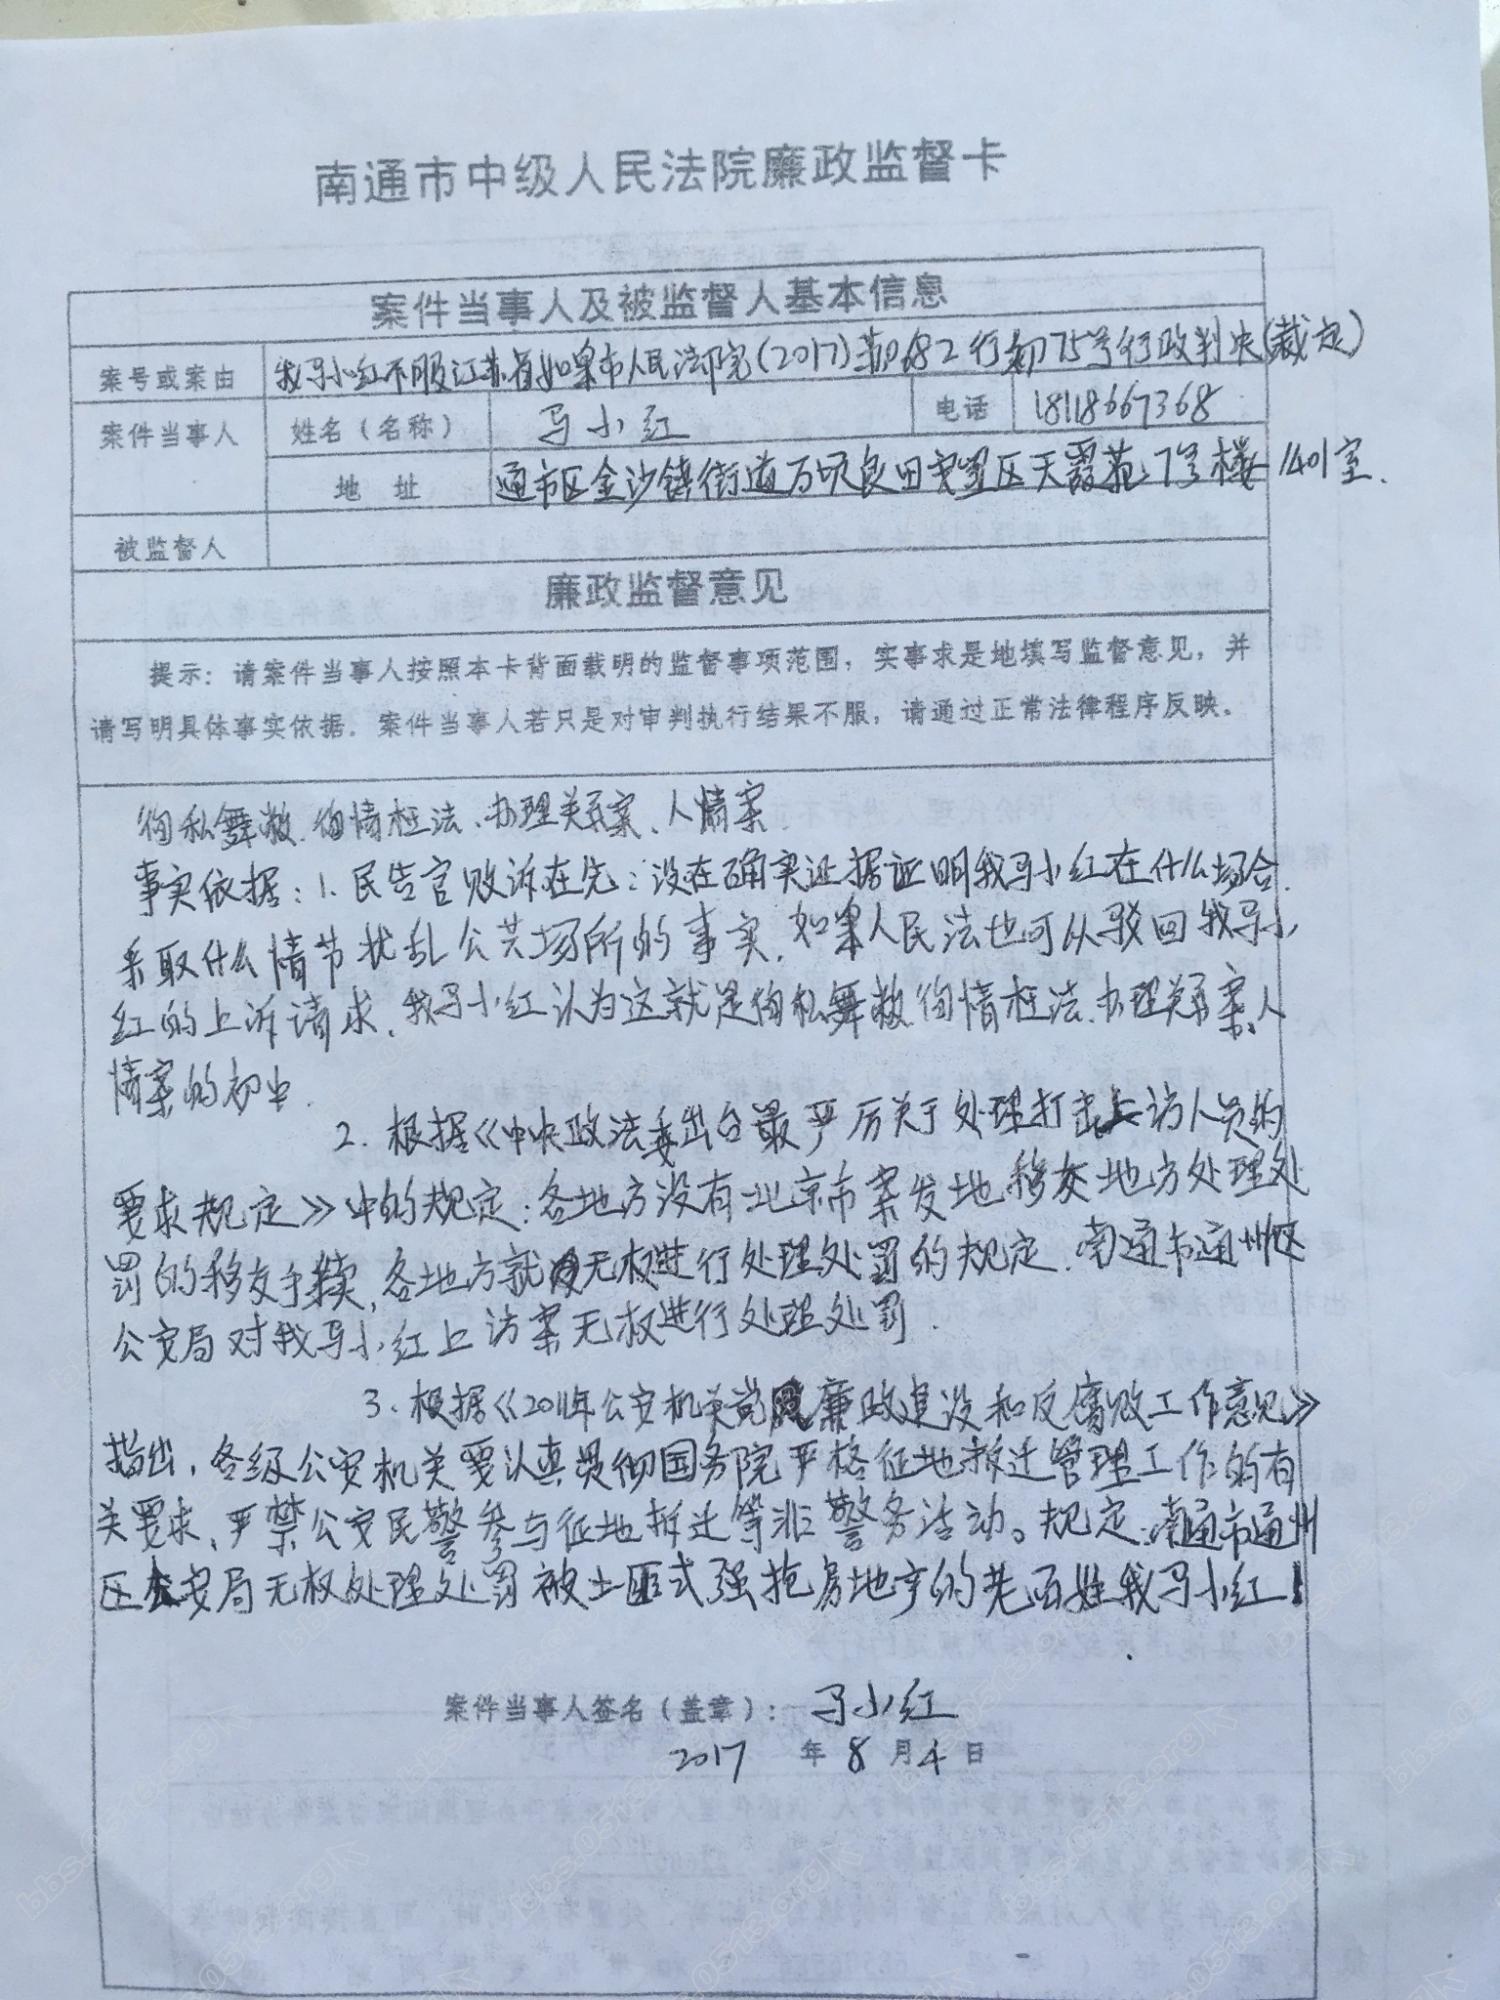 南通市中级人民法院廉政监督卡
案件当事人及被监督人基本信息
案号或案由 我马小红不服江苏省如皋市人民法院(2017)苏0682行初75号行政判决(裁定)
案件当事人 姓名（名称） 马小红 电话 18118667368
地 址 通市区金沙镇街道万顷良田安置区天霞苑7号楼1401室.
被监督人
廉政监督意见
提示：请案件当事人按照本卡背面载明的监督事项范围，实事求是地填写监督意见，并
请写明具体事实依据。案件当事人若只是对审判执行结果不服，请通过正常法律程序反映。
徇私舞敝.徇情枉法、办理关系案、人情案.
事实依据：1.民告官败诉在先：没在确实证据证明我马小红在什么场合.
采取什么情节扰乱公共场所的事实.如果人民法也可从驳回我马小
红的上诉请求.我马小红认为这就是徇私舞敝.徇情枉法.办理关系案.人
情案的初中.
2.根据《中央政法委出台最严厉关于处理打击上访人员的
要求规定》中的规定：各地方没有北京市案发地移交地方处理处
罚的移交手续,各地方就无权进行处理处罚的规定.南通市通州区
公安局对我马小红上访案无权进行处理处罚.
3.根据《2011年公安机关党廉政建设和反腐败工作意见》
指出,各级公安机关要认真贯彻国务院严格征地拆迁管理工作的有
关要求,严禁公安民警参与征地拆迁等非警务活动。规定:南通市通州
区公安局无权处理处罚被土匪式强抢房地产的老百姓我马小红!
案件当事人签名（盖章）：马小红
2017 年 8 月 4 日
bbs.0513.org